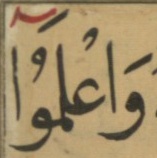 وَاعْلَمُوا